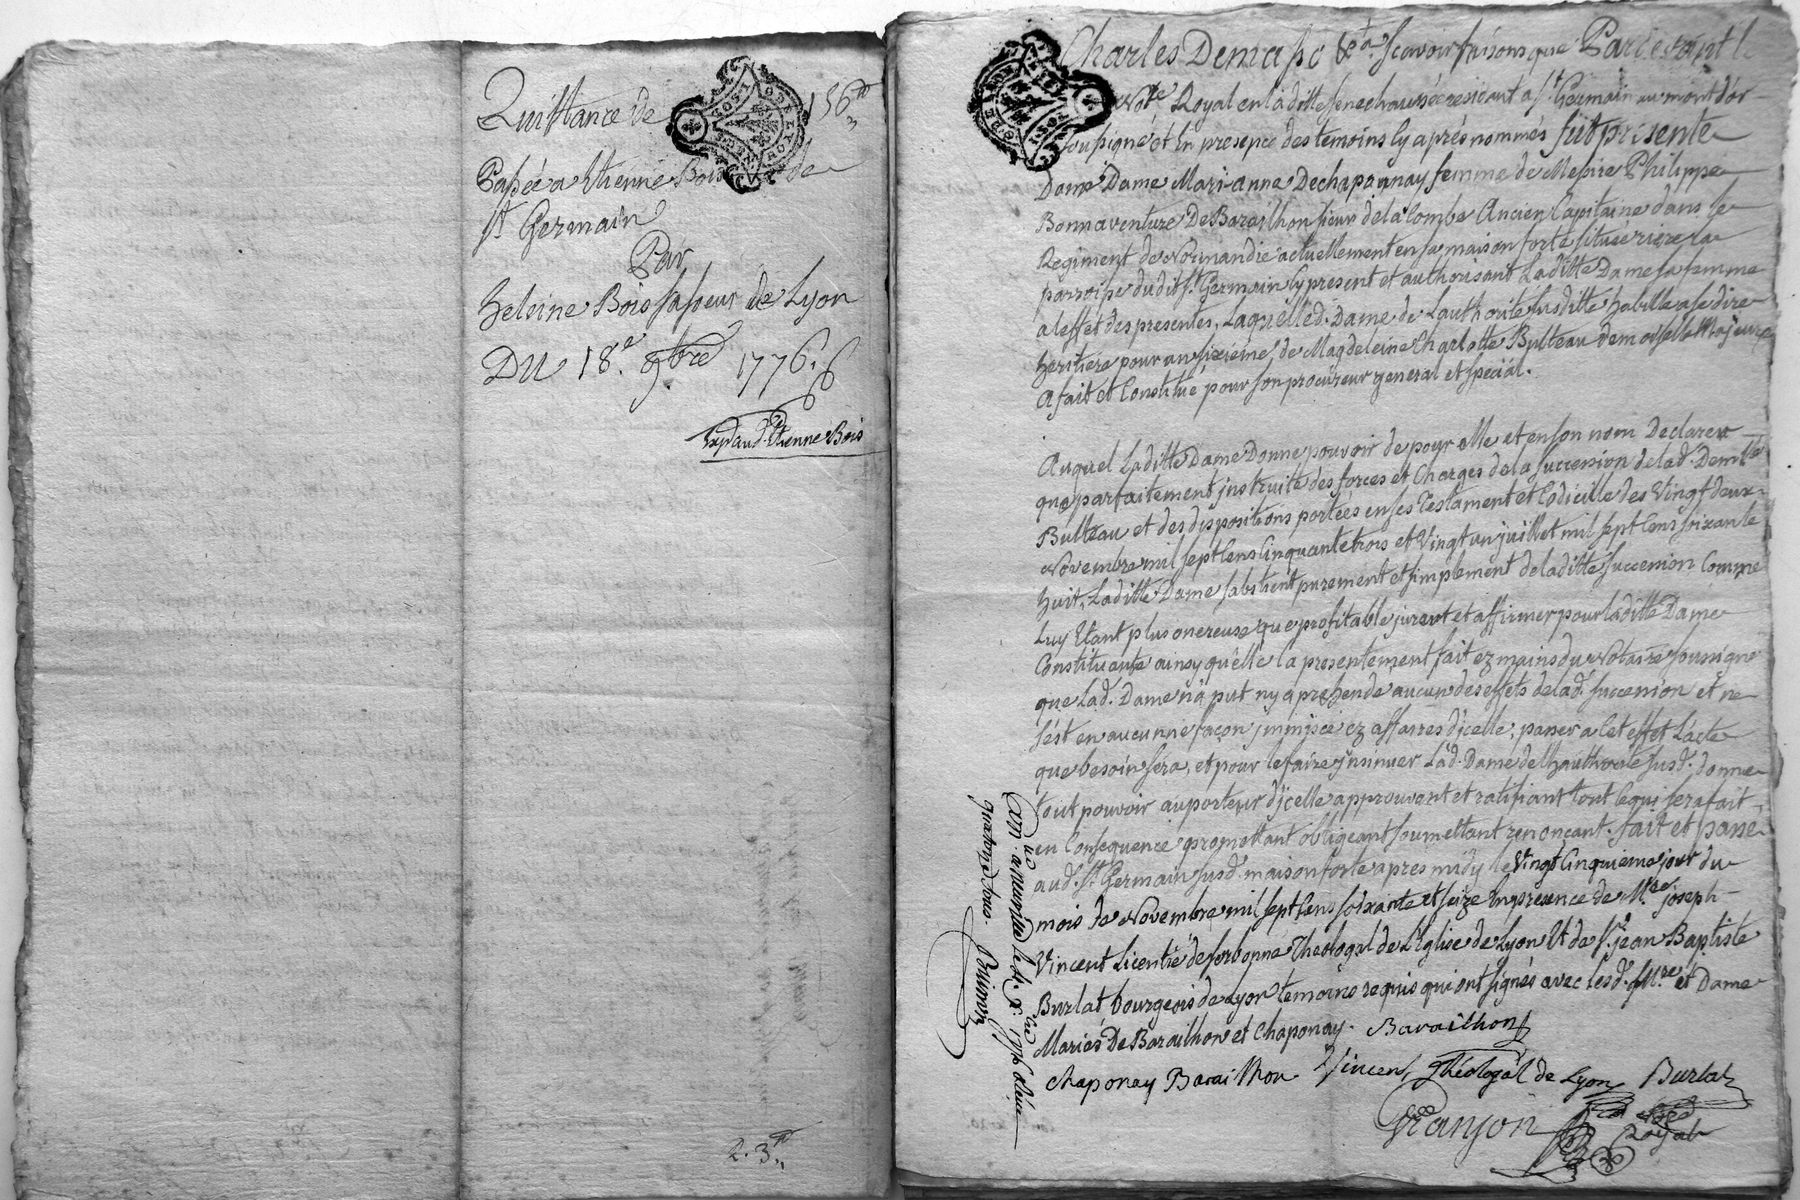 Quittance de 156
Passée a Etienne Bois de
St Germain
Par
heleine Bois sa soeur de Lyon
DU 18.e 9bre 1776.
Etienne Bois
2. 3
Charles Demasso &a scavoir faisons que Pardevant l
No.re Royal en laditte senechaussée residant a St Germain au mont d'or
soussigné et En presence des temoins Cy après nommés fut presente
Dame Dame Mari-anne Dechaponnay femme de Messire Philippe
Bonnaventure De Barailhon sieur de la Combe Ancien Capitaine dans le
Regiment de Normandie actuellement en sa maison forte située riere la
parroisse dudit St. Germain Cy present et authorisant Laditte Dame sa femme
a l'effet des presentes, Laquelle d. Dame de L'authorité susditte habille a se dire
heritiere pour un sixième de Magdeleine Charlotte Bulteau Demoiselle Majeure
A fait et Constitué pour son procureur general et special.
Auquel Laditte Dame Donne pouvoir de pour Elle et en son nom Declarer
que parfaitement instruite des forces et Charges de la succession de lad. Demlle
Bulteau et des dispositions portées en ses Testament et Codicille des Vingt deux
Novembre mil sept Cens Cinquante trois et Vingt un juillet mil sept Cens soixante
huit, Laditte Dame s'abstient purement et simplement de laditte succession Comme
Luy Etant plus onereuse que profitable jurer et affirmer pour laditte Dame
Constituante ainsy qu'elle l'a presentement fait ez mains du Notaire soussigné
que Lad. Dame n'a put ny aprehendé aucun des effets de lad. succession et ne
s'est en aucunne façon jmmiscée ez affaires d'jcelle, passer a Cet effet L'acte
que besoin sera, et pour le faire jnsinuer Lad. Dame de lhauthorité susd. donne
tout pouvoir au porteur d'jcelle approuvant et ratifiant tout Ce qui sera fait
en Consequence promettant obligeant soumettant renoncant. fait et passé
aud. St. Germain susd. maison forte apres midy le Vingt Cinquieme jour du
mois de Novembre mil sept Cens soixante et seize En presence de Mre joseph
Vincent Licentié de sorbonne Theologal de L'Eglise de Lyon Et de Sr. jean Baptiste
Burlat bourgeois de Lyon temoins requis qui ont signés avec lesd. Mre et Dame
Mariés De Barailhon et Chaponay. Barailhon
chaponay Barailhon. Vincent, Théologal de Lyon Burlat
royal
Con. a neuville le 1776
quatorze sous.